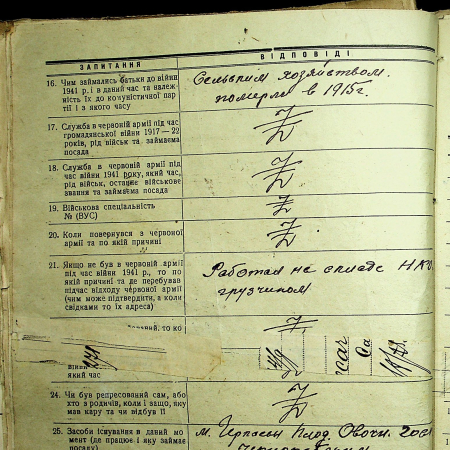 ЗАПИТАННЯ
ВІДПОВІДІ
16. Чим займались батьки до війни
1941 р. і в даний час та належ-
ність їх до комуністичної пар
тії і з якого часу
Сельским хозяйством.
померли в 1915г.
17. Служба в червоній армії під час
громадянської війни 1917 — 22
років, рід військ та займаєма
посада
18. Служба в червоній армії під
час війни 1941 року, який час,
рід військ, останнє військове
звання та займаєма посада
19. Військова спеціальність
№ (ВУС)
20. Коли повернувся з червоної
армії та по якій причині
21. Якщо не був в червоній армії
під час війни 1941 р., то по
якій причині та де перебував
підчас відходу червоної армії
(чим може підтвердити, а коли
свідками то їх адреса)
Работал на складе
грузчиком
то ко
який час
24. Чи був репресований сам, або
хто з родичів, коли і защо, яку
мав кару та чи відбув її
25. Засоби існування в даний мо
мент (де працює і яку займає
посаду)
м. Черкассы Плод. Овочн.